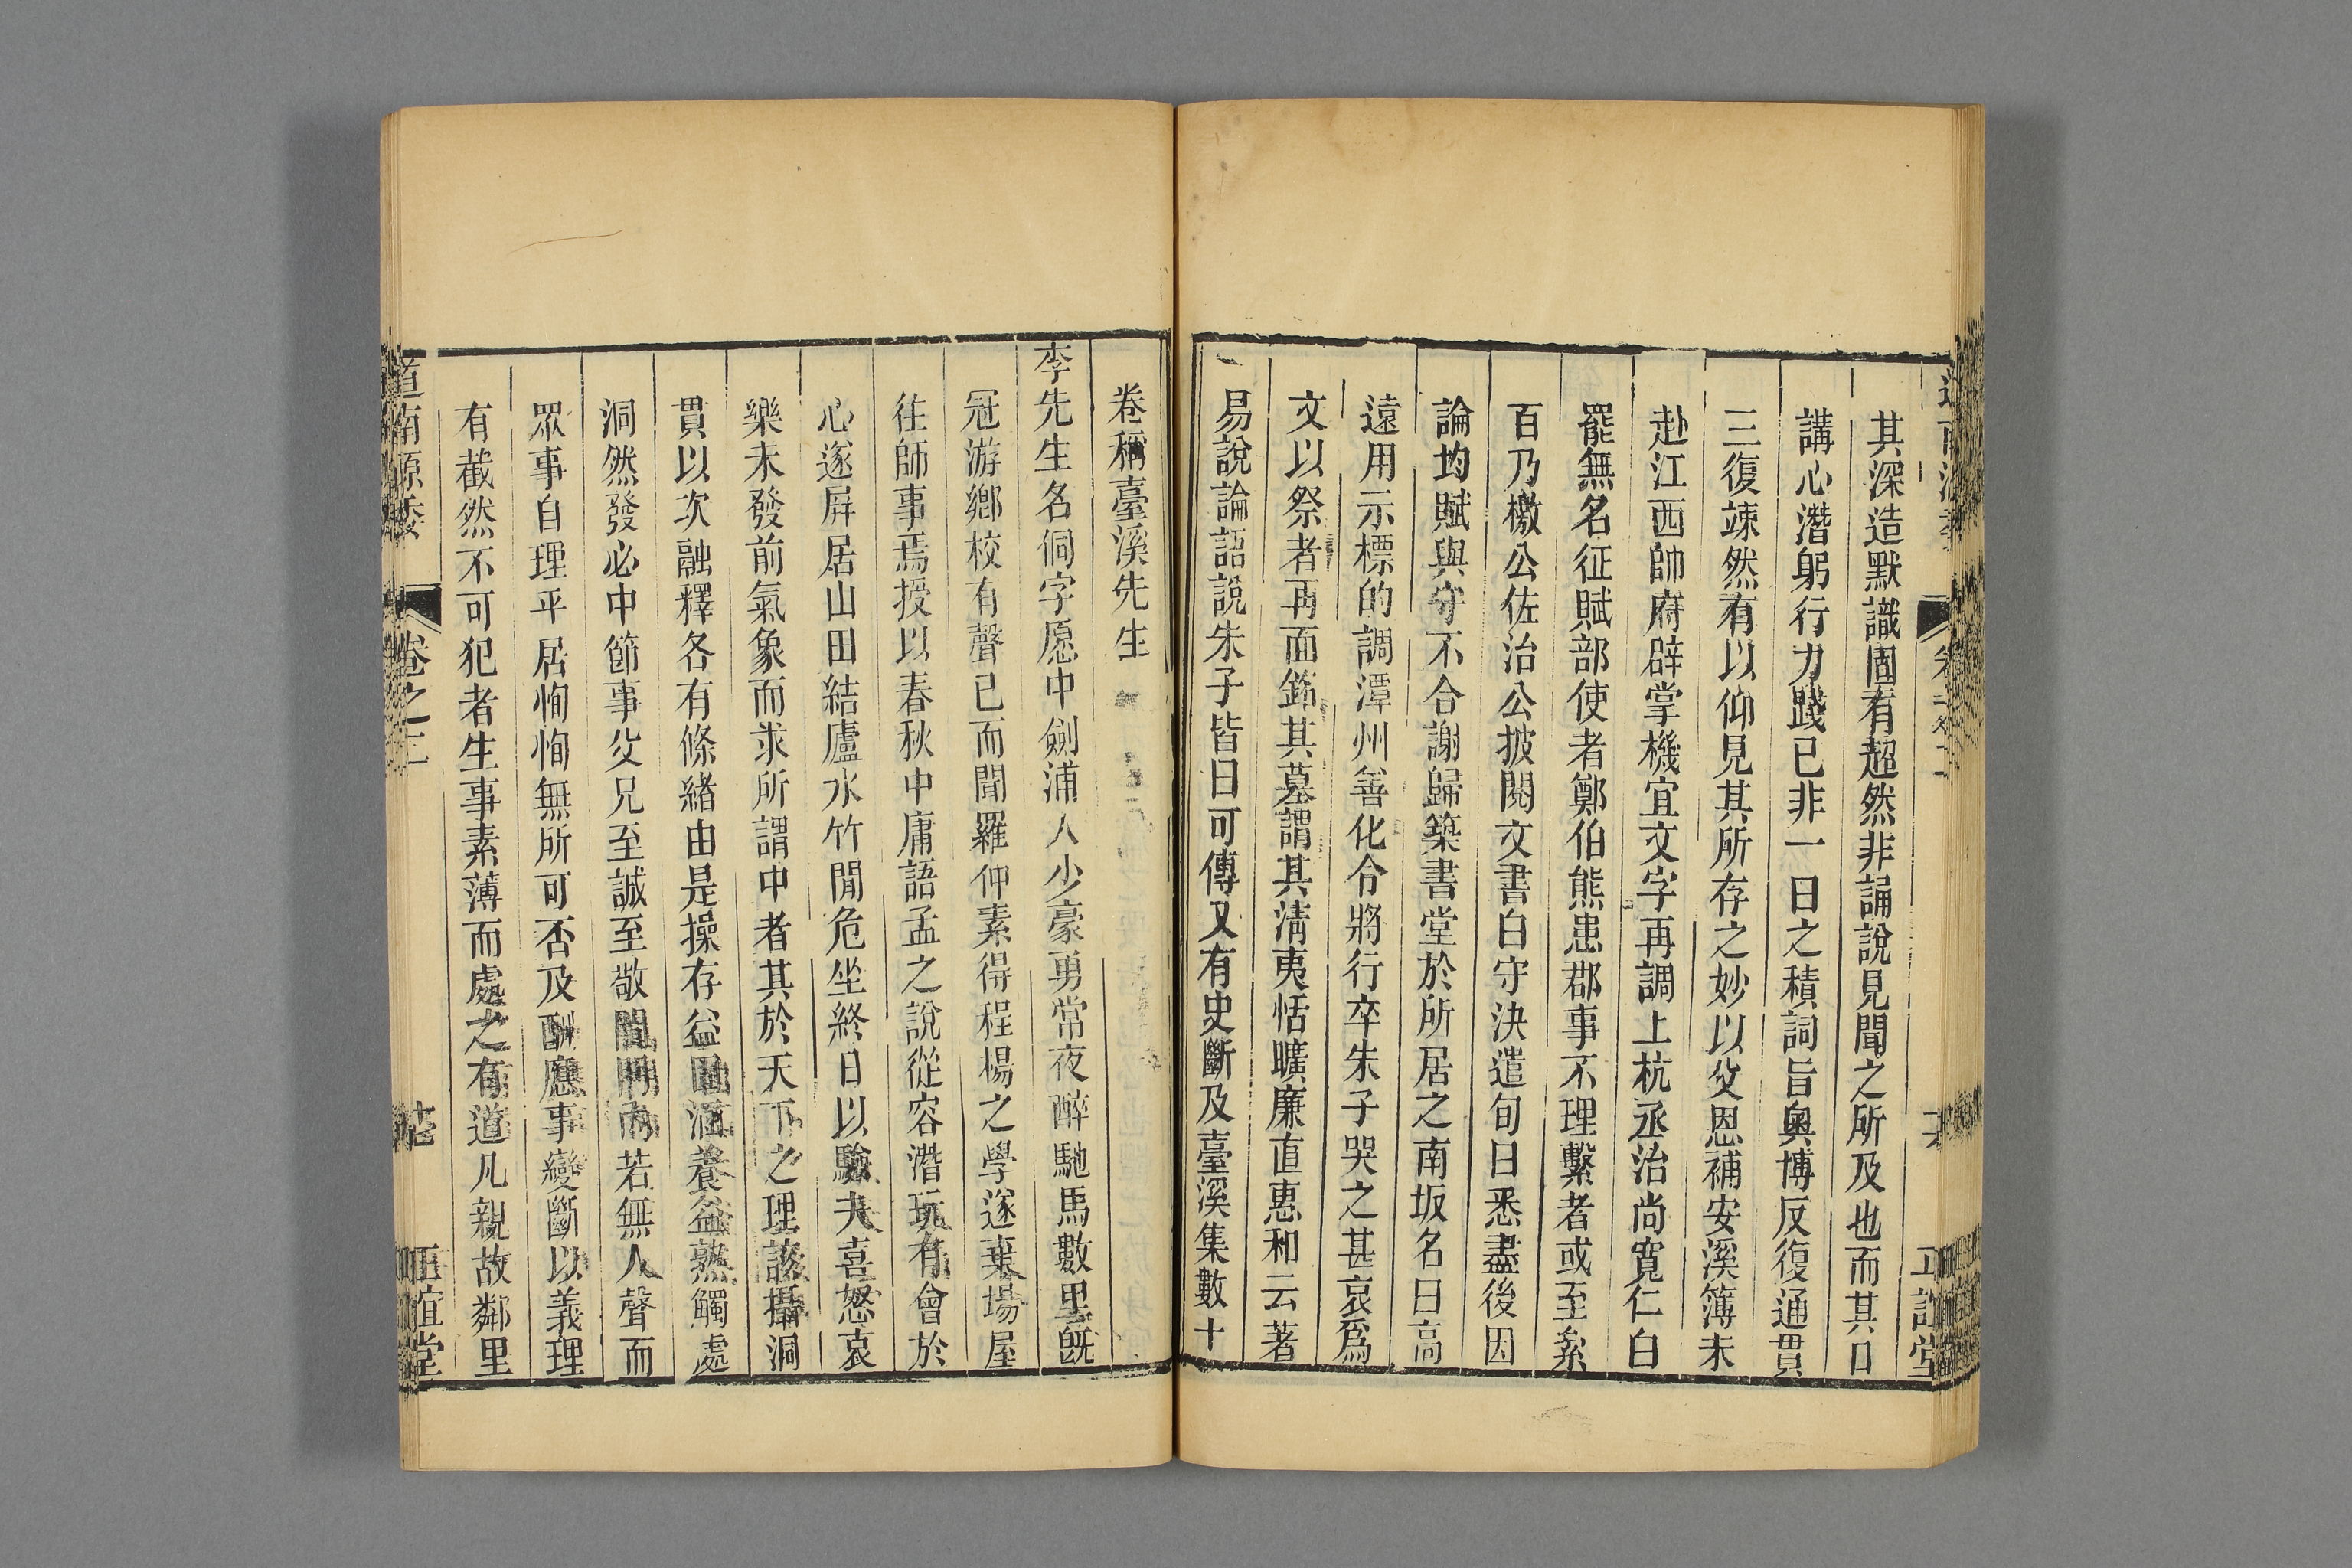 其深造默識固有超然非誦說見聞之所及也而其口
講心潛躬行力踐已非一日之積詞旨奧博反復通貫
三復竦然有以仰見其所存之妙以父恩補安溪簿未
赴江西帥府辟掌機宜文字再調上杭丞治尚寬仁白
罷無名征賦部使者鄭伯熊患郡事不理繫者或至絫
百乃檄公佐治公披閱文書白守決遣旬日悉盡後因
論均賦與守不合謝歸築書堂於所居之南坂名曰高
遠用示標的調潭州善化令將行卒朱子哭之甚哀爲
文以祭者再面銘其墓謂其淸夷恬曠廉直惠和云著
易說論語說朱子皆曰可傳又有史斷及臺溪集數十
卷稱臺溪先生
李先生名侗字愿中劍浦人少豪勇常夜醉馳馬數里旣
冠游鄉校有聲已而聞羅仲素得程楊之學遂棄場屋
往師事焉授以春秋中庸語孟之說從容潛玩有會於
心遂屏居山田結廬水竹閒危坐終日以驗夫喜怒哀
樂未發前氣象而求所謂中者其於天下之理該攝洞
貫以次融釋各有條緒由是操存益固涵養益熟觸處
洞然發必中節事父兄至誠至敬閨門內若無人聲而
眾事自理平居恂恂無所可否及酬應事變斷以義理
有截然不可犯者生事素薄而處之有道凡親故鄰里
道南源委
卷之三
正誼堂